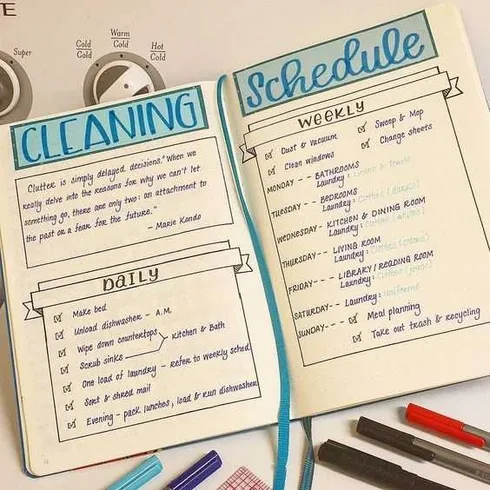 E
Super
Cold
Cold
Warm
Cold
Hot
Cold
CLEANING
Clutter is simply delayed decisions." When we
really delve into the reasons for why we can't let
something go, there are only two: an attachment to
the past or a fear for the future."
- Marie Kondo
DAILY
Make bed
Unload dishwasher - A.M.
Wipe down countertops
Scrub sinks
Kitchen & Bath
One load of laundry - refer to weekly sched.
Sort & shred mail
Evening - pack lunches, load & run dishwasher
Schedule
WEEKLY
Dust & Vacuum
Sweep & Mop
Clean windows
Change sheets
MONDAY - - BATHROOMS
Laundry: Linens & Towels
TUESDAY - - BEDROOMS
Laundry: Clothes (darks)
WEDNESDAY - KITCHEN & DINING ROOM
Laundry: Clothes (whites)
THURSDAY - - LIVING ROOM
Laundry: Clothes (colors)
FRIDAY - - LIBRARY/READING ROOM
Laundry: Clothes
SATURDAY - - Laundry: 
SUNDAY - - - Meal planning
Take out trash & recycling